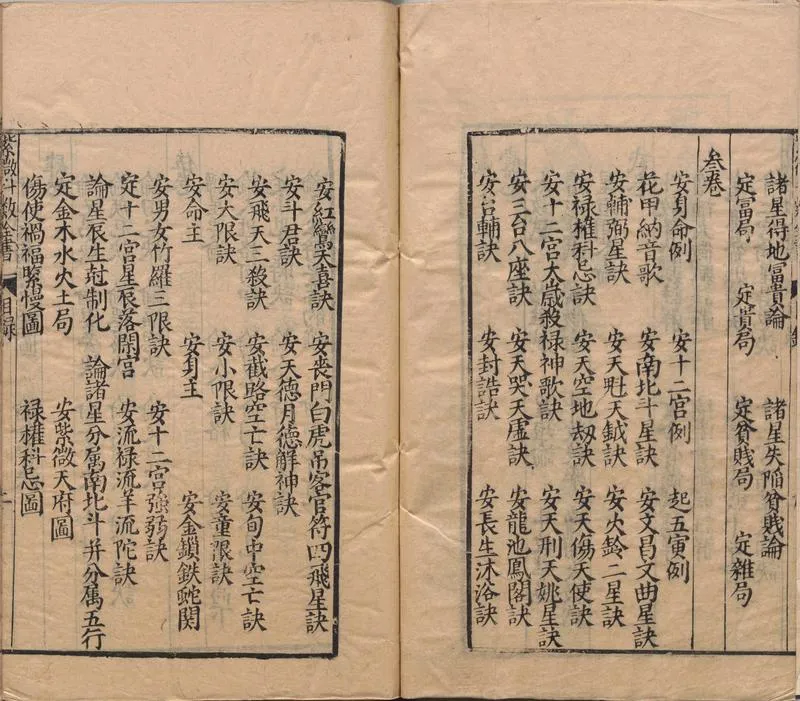 諸星得地富貴論 諸星失陷貧賤論
定富局 定貴局 定貧賤局 定雜局
叁卷
安身命例 安十二宮例 起五寅例
花甲納音歌 安南北斗星訣 安文昌文曲星訣
安輔弼星訣 安天魁天鉞訣 安火鈴二星訣
安禄權科忌訣 安天空地刼訣 安天傷天使訣
安十二宮太歲殺禄神歌訣 安天刑天姚星訣
安三台八座訣 安天哭天虛訣 安龍池鳳閣訣
安台輔訣 安封誥訣 安長生沐浴訣
安紅鸞天喜訣 安喪門白虎吊客官符四飛星訣
安斗君訣 安天德月德解神訣
安飛天三殺訣 安截路空亡訣 安旬中空亡訣
安大限訣 安小限訣 安童限訣
安命主 安身主 安金鎖鉄蛇関
安男女竹羅三限訣 安十二宮強弱訣
定十二宮星辰落閑宮 安流禄流羊流陀訣
論星辰生尅制化 論諸星分属南北斗并分属五行
定金木水火土局 安紫微天府圖
傷使禍福緊慢圖 禄權科忌圖
紫微斗數全書 目録